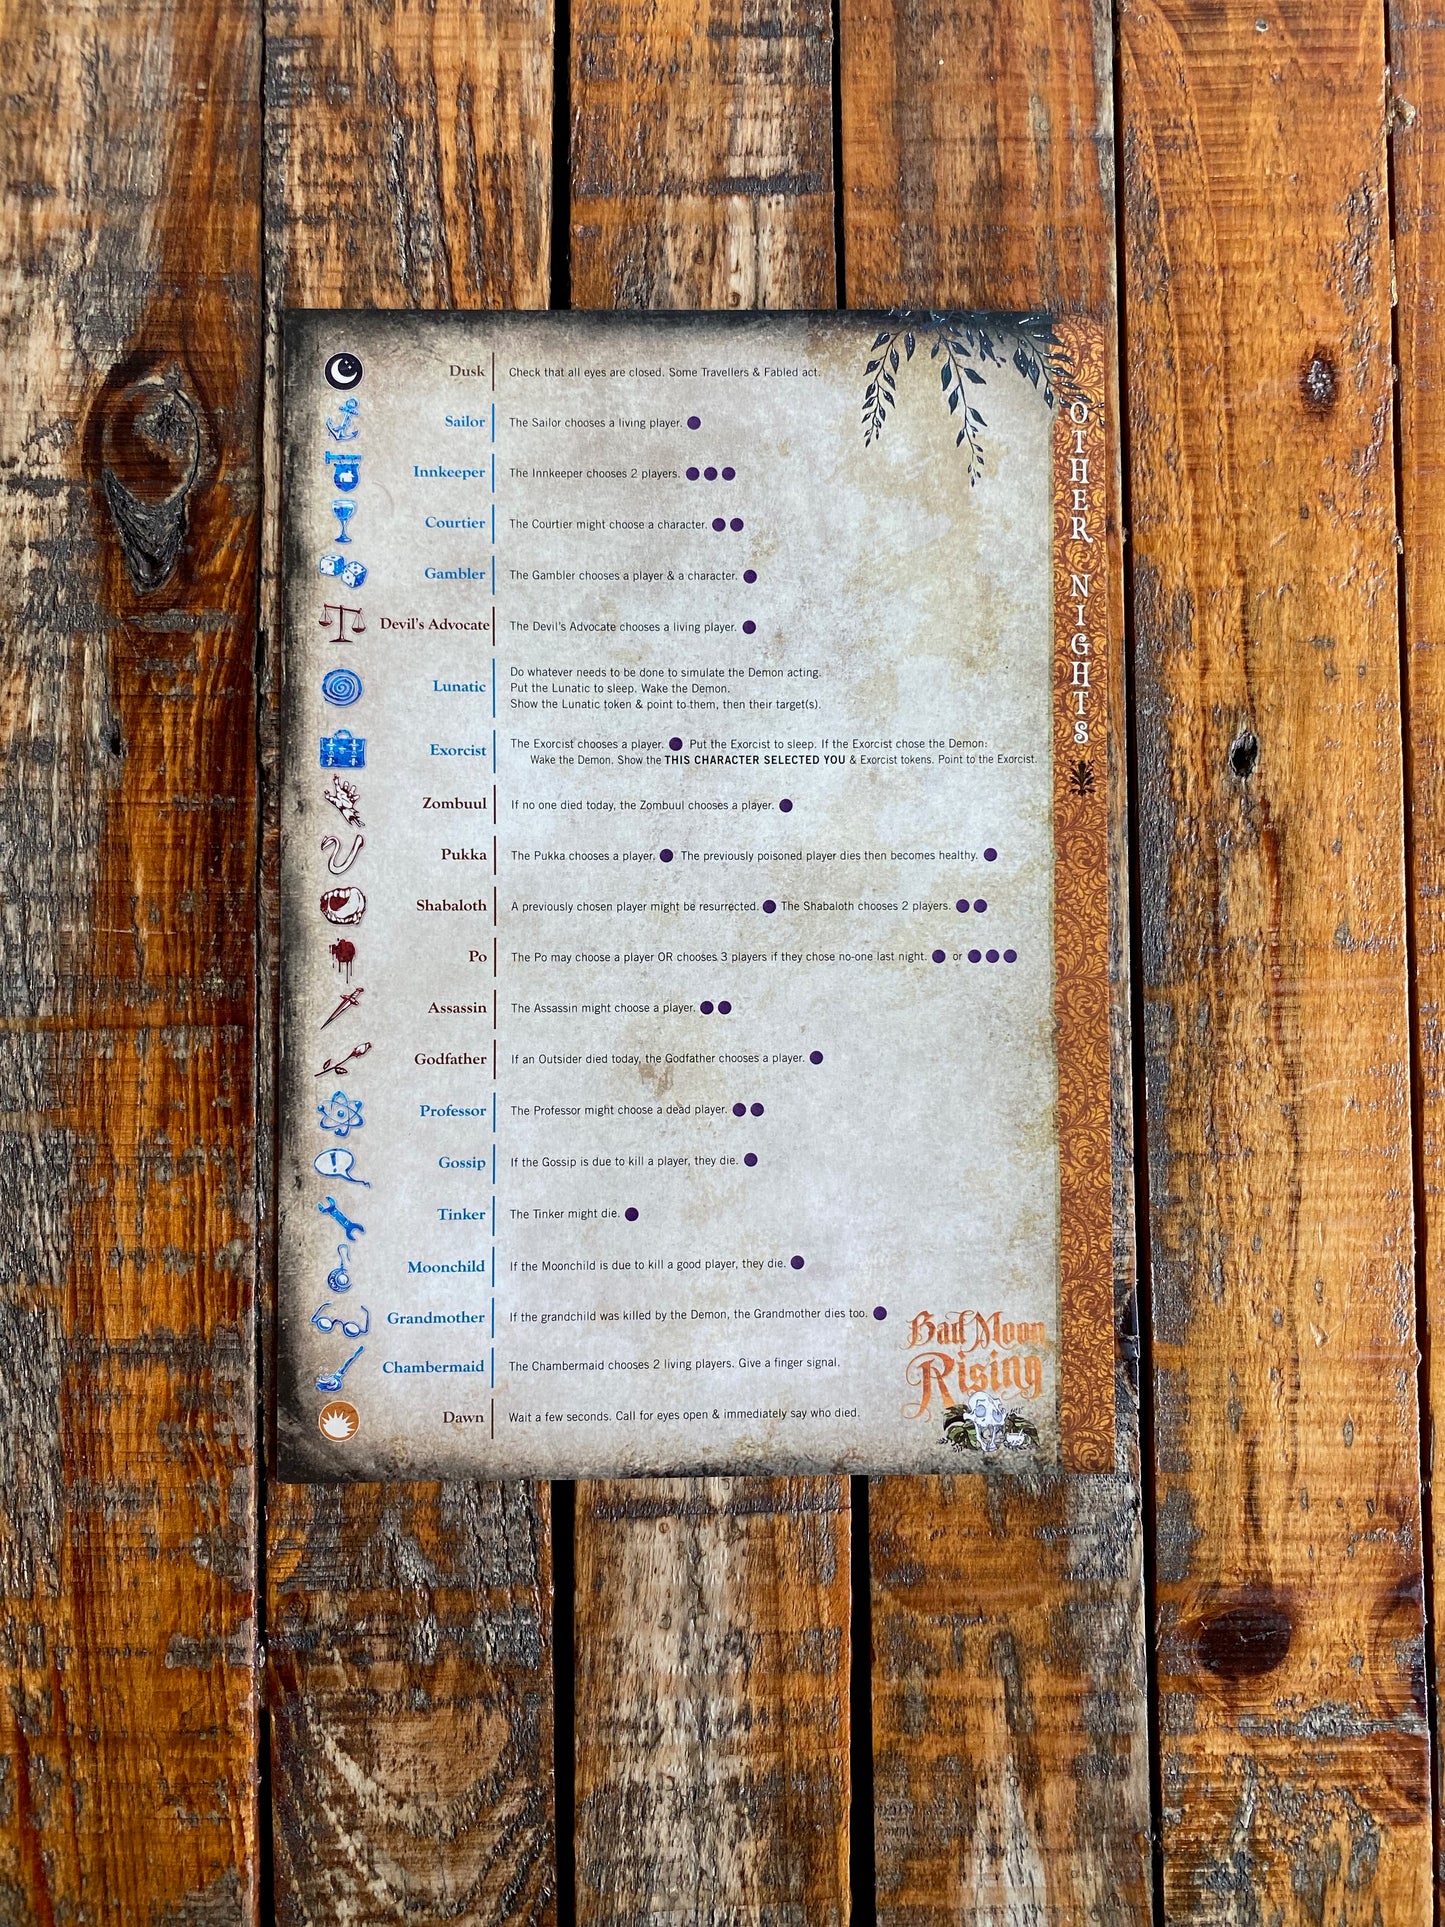 Dusk Check that all eyes are closed. Some Travellers & Fabled act.
Sailor The Sailor chooses a living player.
Innkeeper The Innkeeper chooses 2 players.
Courtier The Courtier might choose a character.
Gambler The Gambler chooses a player & a character.
Devil's Advocate The Devil's Advocate chooses a living player.
Lunatic Do whatever needs to be done to simulate the Demon acting.
Put the Lunatic to sleep. Wake the Demon.
Show the Lunatic token & point to them, then their target(s).
Exorcist The Exorcist chooses a player. Put the Exorcist to sleep. If the Exorcist chose the Demon:
Wake the Demon. Show the THIS CHARACTER SELECTED YOU & Exorcist tokens. Point to the Exorcist.
Zombuul If no one died today, the Zombuul chooses a player.
Pukka The Pukka chooses a player. The previously poisoned player dies then becomes healthy.
Shabaloth A previously chosen player might be resurrected. The Shabaloth chooses 2 players.
Po The Po may choose a player OR chooses 3 players if they chose no-one last night. or
Assassin The Assassin might choose a player.
Godfather If an Outsider died today, the Godfather chooses a player.
Professor The Professor might choose a dead player.
Gossip If the Gossip is due to kill a player, they die.
Tinker The Tinker might die.
Moonchild If the Moonchild is due to kill a good player, they die.
Grandmother If the grandchild was killed by the Demon, the Grandmother dies too.
Chambermaid The Chambermaid chooses 2 living players. Give a finger signal.
Dawn Wait a few seconds. Call for eyes open & immediately say who died.
OTHER NIGHTS
Bad Moon
Rising